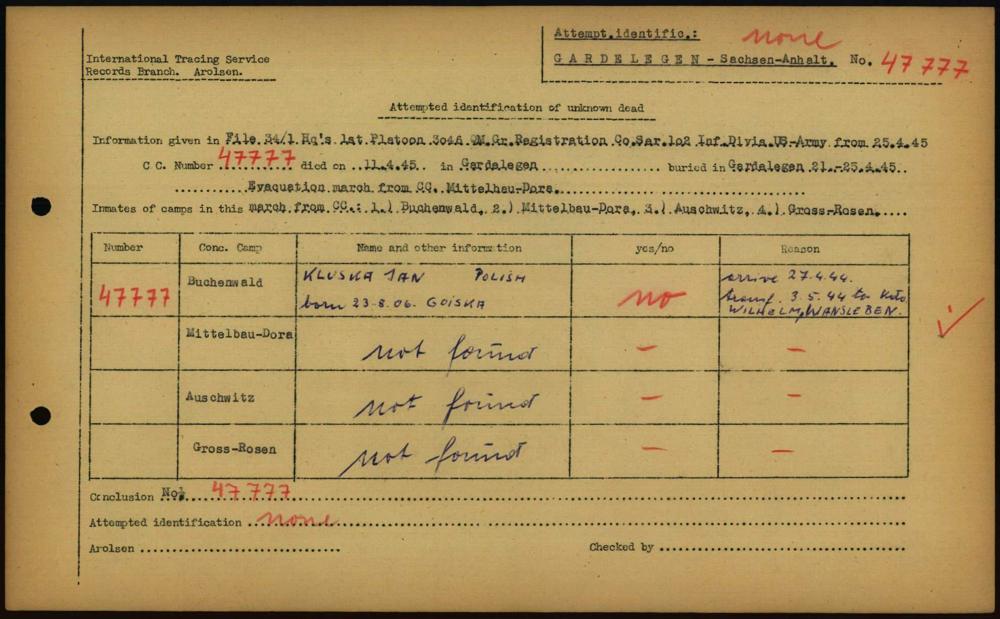 Attempt.identific.: none
International Tracing Service
Records Branch. Arolsen.
GARDELEGEN - Sachsen-Anhalt. No. 47 777
Attempted identification of unknown dead
Information given in File 34/1 Hq's 1st Platoon 3046 QM.Gr.Registration Co.Ser.1o2 Inf.Divia.US-Army from 25.4.45
C C. Number 47777 died on 11.4.45 in Gardalegen buried in Gardalegen 21.-25.4.45.
Evacuation march from CC. Mittelbau-Dora.
Inmates of camps in this march from CC.: 1.) Buchenwald, 2.) Mittelbau-Dora, 3.) Auschwitz, 4.) Gross-Rosen.
Number Conc. Camp Name and other information yes/no Reason
47777 Buchenwald KLUSKA JAN POLISH no arrive 27.4.44.
born 23-8.06. GOISKA transf. 3.5.44 to Kdo
WILHELM, WANSLEBEN.
Mittelbau-Dora not found – –
Auschwitz not found – –
Gross-Rosen not found – –
Conclusion No. 47 777
Attempted identification none
Arolsen Checked by